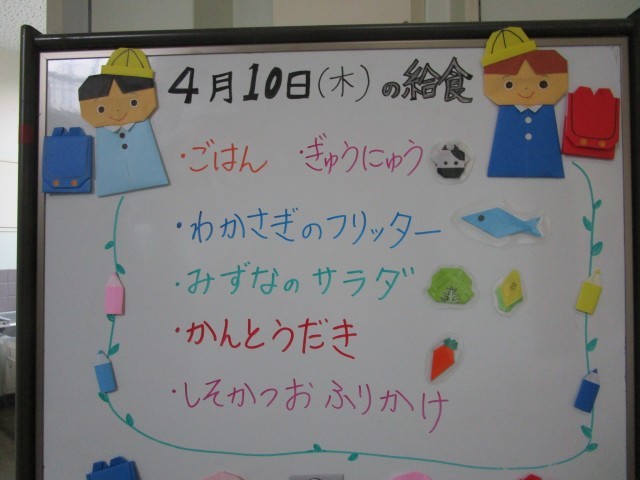 4月10日(木)の給食
・ごはん ・ぎゅうにゅう
・わかさぎのフリッター
・みずなのサラダ
・かんとうだき
・しそかつお ふりかけ